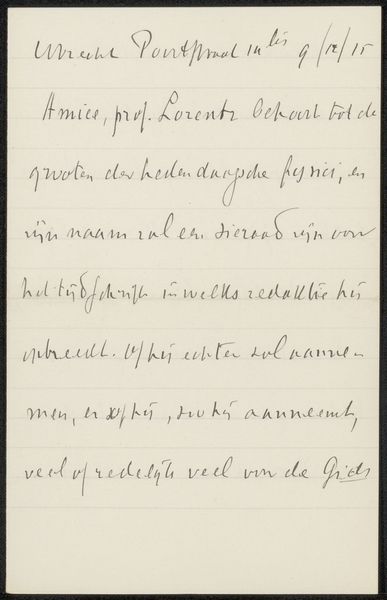 Utrecht Poortstraat 10 bis 9/12/15
Amice, prof. Lorentz behoort tot de
grooten der hedendaagsche fysici, en
zijn naam zal een sieraad zijn voor
het tijdschrift in welks redaktie hij
optreedt. Of hij echter zal aanne-
men, en of hij, zoo hij aanneemt,
veel of redelijk veel voor de Gids